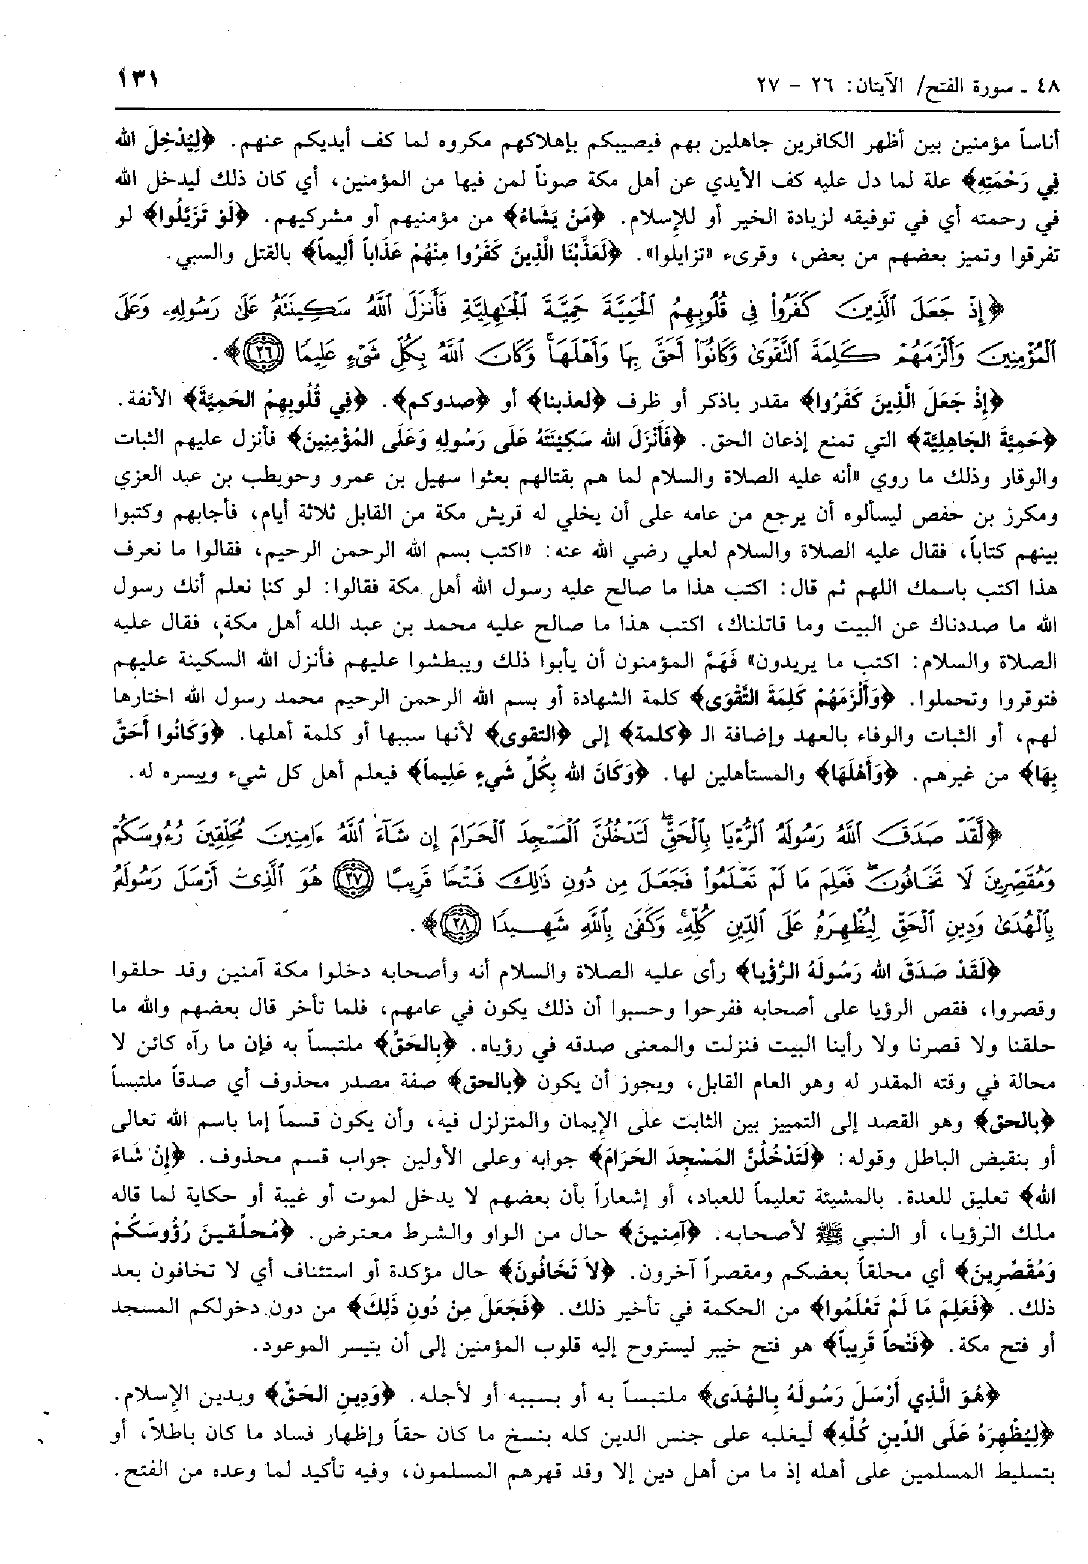 ٤٨ ـ سورة الفتح/ الآيتان: ٢٦ - ٢٧
١٣١
أناساً مؤمنين بين أظهر الكافرين جاهلين بهم فيصيبكم بإهلاكهم مكروه لما كف أيديكم عنهم. ﴿لِيُدْخِلَ الله
فِي رَحْمَتِهِ﴾ علة لما دل عليه كف الأيدي عن أهل مكة صوناً لمن فيها من المؤمنين، أي كان ذلك ليدخل الله
في رحمته أي في توفيقه لزيادة الخير أو للإِسلام. ﴿مَنْ يَشَاءُ﴾ من مؤمنيهم أو مشركيهم. ﴿لَوْ تَزَيَّلُوا﴾ لو
تفرقوا وتميز بعضهم من بعض، وقرىء «تزايلوا». ﴿لَعَذَّبْنَا الَّذِينَ كَفَرُوا مِنْهُمْ عَذَاباً أَلِيماً﴾ بالقتل والسبي.
﴿إِذْ جَعَلَ ٱلَّذِينَ كَفَرُواْ فِي قُلُوبِهِمُ ٱلْحَمِيَّةَ حَمِيَّةَ ٱلْجَٰهِلِيَّةِ فَأَنزَلَ ٱللَّهُ سَكِينَتَهُ عَلَىٰ رَسُولِهِۦ وَعَلَى
ٱلْمُؤْمِنِينَ وَأَلْزَمَهُمْ كَلِمَةَ ٱلتَّقْوَىٰ وَكَانُوٓاْ أَحَقَّ بِهَا وَأَهْلَهَاۚ وَكَانَ ٱللَّهُ بِكُلِّ شَيْءٍ عَلِيمًا ٢٦﴾.
﴿إِذْ جَعَلَ الَّذِينَ كَفَرُوا﴾ مقدر باذكر أو ظرف ﴿لعذبنا﴾ أو ﴿صدوكم﴾. ﴿فِي قُلُوبِهِمُ الحَمِيَّةَ﴾ الأنفة.
﴿حَمِيَّةَ الجَاهِلِيَّةِ﴾ التي تمنع إذعان الحق. ﴿فَأَنْزَلَ الله سَكِينَتَهُ عَلَى رَسُولِهِ وَعَلَى المُؤْمِنِينَ﴾ فأنزل عليهم الثبات
والوقار وذلك ما روي «أنه عليه الصلاة والسلام لما هم بقتالهم بعثوا سهيل بن عمرو وحويطب بن عبد العزي
ومكرز بن حفص ليسألوه أن يرجع من عامه على أن يخلي له قريش مكة من القابل ثلاثة أيام، فأجابهم وكتبوا
بينهم كتاباً، فقال عليه الصلاة والسلام لعلي رضي الله عنه: «اكتب بسم الله الرحمن الرحيم، فقالوا ما نعرف
هذا اكتب باسمك اللهم ثم قال: اكتب هذا ما صالح عليه رسول الله أهل مكة فقالوا: لو كنا نعلم أنك رسول
الله ما صددناك عن البيت وما قاتلناك، اكتب هذا ما صالح عليه محمد بن عبد الله أهل مكة، فقال عليه
الصلاة والسلام: اكتب ما يريدون» فَهَمَّ المؤمنون أن يأبوا ذلك ويبطشوا عليهم فأنزل الله السكينة عليهم
فتوقروا وتحملوا. ﴿وَأَلْزَمَهُمْ كَلِمَةَ التَّقْوَى﴾ كلمة الشهادة أو بسم الله الرحمن الرحيم محمد رسول الله اختارها
لهم، أو الثبات والوفاء بالعهد وإضافة الـ ﴿كلمة﴾ إلى ﴿التقوى﴾ لأنها سببها أو كلمة أهلها. ﴿وَكَانُوا أَحَقَّ
بِهَا﴾ من غيرهم. ﴿وَأَهْلَهَا﴾ والمستأهلين لها. ﴿وَكَانَ الله بِكُلِّ شَيْءٍ عَلِيماً﴾ فيعلم أهل كل شيء وييسره له.
﴿لَّقَدْ صَدَقَ ٱللَّهُ رَسُولَهُ ٱلرُّءْيَا بِٱلْحَقِّۖ لَتَدْخُلُنَّ ٱلْمَسْجِدَ ٱلْحَرَامَ إِن شَآءَ ٱللَّهُ ءَامِنِينَ مُحَلِّقِينَ رُءُوسَكُمْ
وَمُقَصِّرِينَ لَا تَخَافُونَۖ فَعَلِمَ مَا لَمْ تَعْلَمُواْ فَجَعَلَ مِن دُونِ ذَٰلِكَ فَتْحًا قَرِيبًا ٢٧ هُوَ ٱلَّذِيٓ أَرْسَلَ رَسُولَهُ
بِٱلْهُدَىٰ وَدِينِ ٱلْحَقِّ لِيُظْهِرَهُ عَلَى ٱلدِّينِ كُلِّهِۦۚ وَكَفَىٰ بِٱللَّهِ شَهِيدًا ٢٨﴾.
﴿لَقَدْ صَدَقَ الله رَسُولَهُ الرُّؤْيا﴾ رأى عليه الصلاة والسلام أنه وأصحابه دخلوا مكة آمنين وقد حلقوا
وقصروا، فقص الرؤيا على أصحابه ففرحوا وحسبوا أن ذلك يكون في عامهم، فلما تأخر قال بعضهم والله ما
حلقنا ولا قصرنا ولا رأينا البيت فنزلت والمعنى صدقه في رؤياه. ﴿بِالحَقِّ﴾ ملتبساً به فإن ما رآه كائن لا
محالة في وقته المقدر له وهو العام القابل، ويجوز أن يكون ﴿بالحق﴾ صفة مصدر محذوف أي صدقاً ملتبساً
﴿بالحق﴾ وهو القصد إلى التمييز بين الثابت على الإِيمان والمتزلزل فيه، وأن يكون قسماً إما باسم الله تعالى
أو بنقيض الباطل وقوله: ﴿لَتَدْخُلُنَّ المَسْجِدَ الحَرَامَ﴾ جوابه وعلى الأولين جواب قسم محذوف. ﴿إِنْ شَاءَ
الله﴾ تعليق للعدة. بالمشيئة تعليماً للعباد، أو إشعاراً بأن بعضهم لا يدخل لموت أو غيبة أو حكاية لما قاله
ملك الرؤيا، أو النبي ﷺ لأصحابه. ﴿آمِنِينَ﴾ حال من الواو والشرط معترض. ﴿مُحَلِّقينَ رُؤُوسَكُمْ
وَمُقَصِّرِينَ﴾ أي محلقاً بعضكم ومقصراً آخرون. ﴿لاَ تَخَافُونَ﴾ حال مؤكدة أو استئناف أي لا تخافون بعد
ذلك. ﴿فَعَلِمَ مَا لَمْ تَعْلَمُوا﴾ من الحكمة في تأخير ذلك. ﴿فَجَعَلَ مِنْ دُونِ ذَلِكَ﴾ من دون دخولكم المسجد
أو فتح مكة. ﴿فَتْحاً قَرِيباً﴾ هو فتح خيبر ليستروح إليه قلوب المؤمنين إلى أن يتيسر الموعود.
﴿هُوَ الَّذِي أَرْسَلَ رَسُولَهُ بِالهُدَى﴾ ملتبساً به أو بسببه أو لأجله. ﴿وَدِينِ الحَقِّ﴾ وبدين الإِسلام.
﴿لِيُظْهِرَهُ عَلَى الدِّينِ كُلِّهِ﴾ ليغلبه على جنس الدين كله بنسخ ما كان حقاً وإظهار فساد ما كان باطلاً، أو
بتسليط المسلمين على أهله إذ ما من أهل دين إلا وقد قهرهم المسلمون، وفيه تأكيد لما وعده من الفتح.